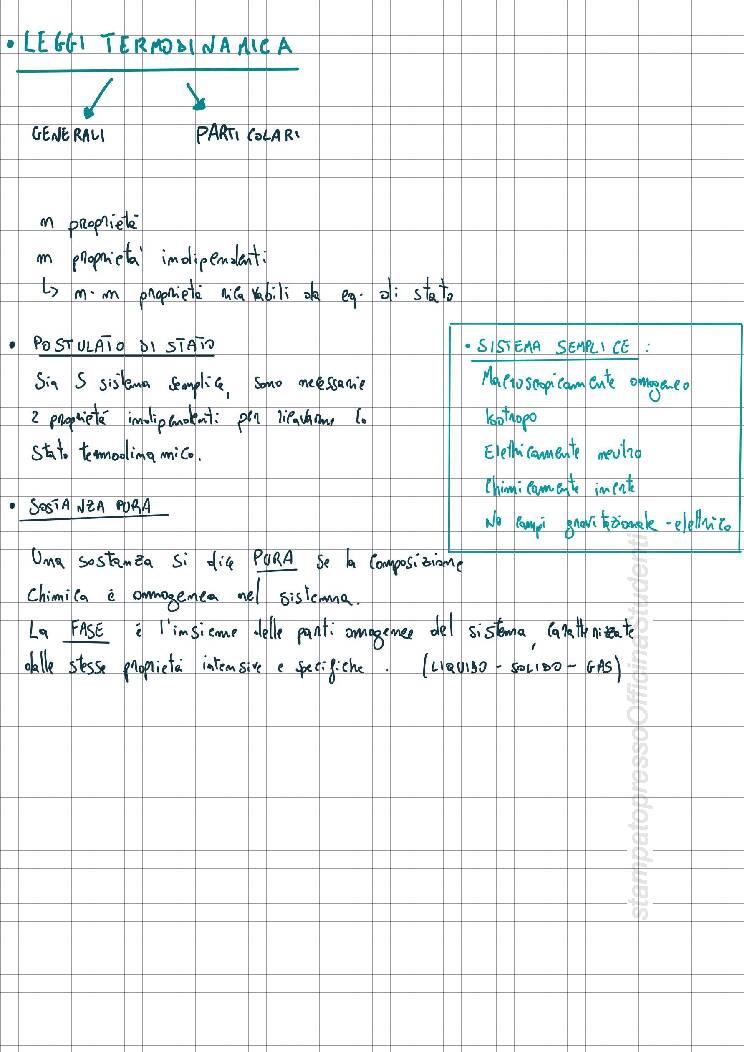 • LEGGI TERMODINAMICA
GENERALI PARTICOLARI
n proprietà
m proprietà indipendenti
↳ n-m proprietà ricavabili da eq. di stato
• POSTULATO DI STATO
Sia S sistema semplice, sono necessarie
2 proprietà indipendenti per ricavarne lo
stato termodinamico.
• SISTEMA SEMPLICE :
Macroscopicamente omogeneo
Isotropo
Elettricamente neutro
Chimicamente inerte
No campi gravitazionale - elettrico
• SOSTANZA PURA
Una sostanza si dice PURA se la composizione
chimica è omogenea nel sistema.
La FASE è l'insieme delle parti omogenee del sistema, caratterizzate
dalle stesse proprietà intensive e specifiche. (LIQUIDO - SOLIDO - GAS)
stampatopressoOfficinaStudenti